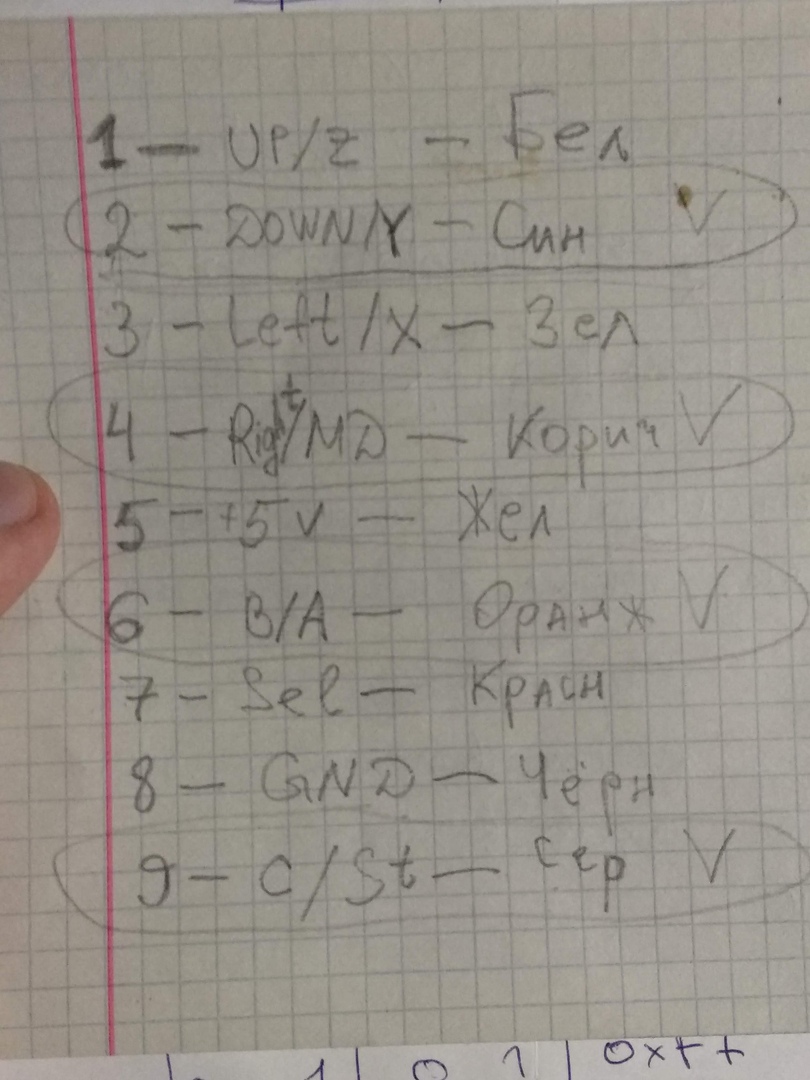 1 — UP/Z — Бел
2 — DOWN/Y — Син V
3 — Left/X — Зел
4 — Right/MD — Корич V
5 — +5V — Жел
6 — B/A — Оранж V
7 — Sel — Красн
8 — GND — Чёрн
9 — C/St — Сер V